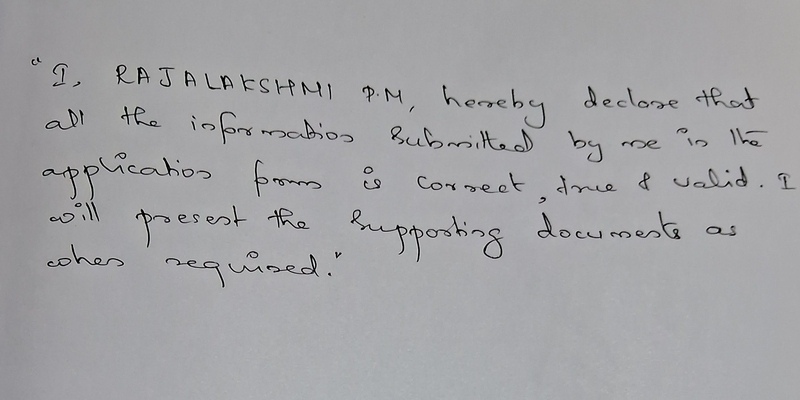 "I, RAJALAKSHMI P.M, hereby declare that
all the information submitted by me in the
application form is correct, true & valid. I
will present the supporting documents as
when required."